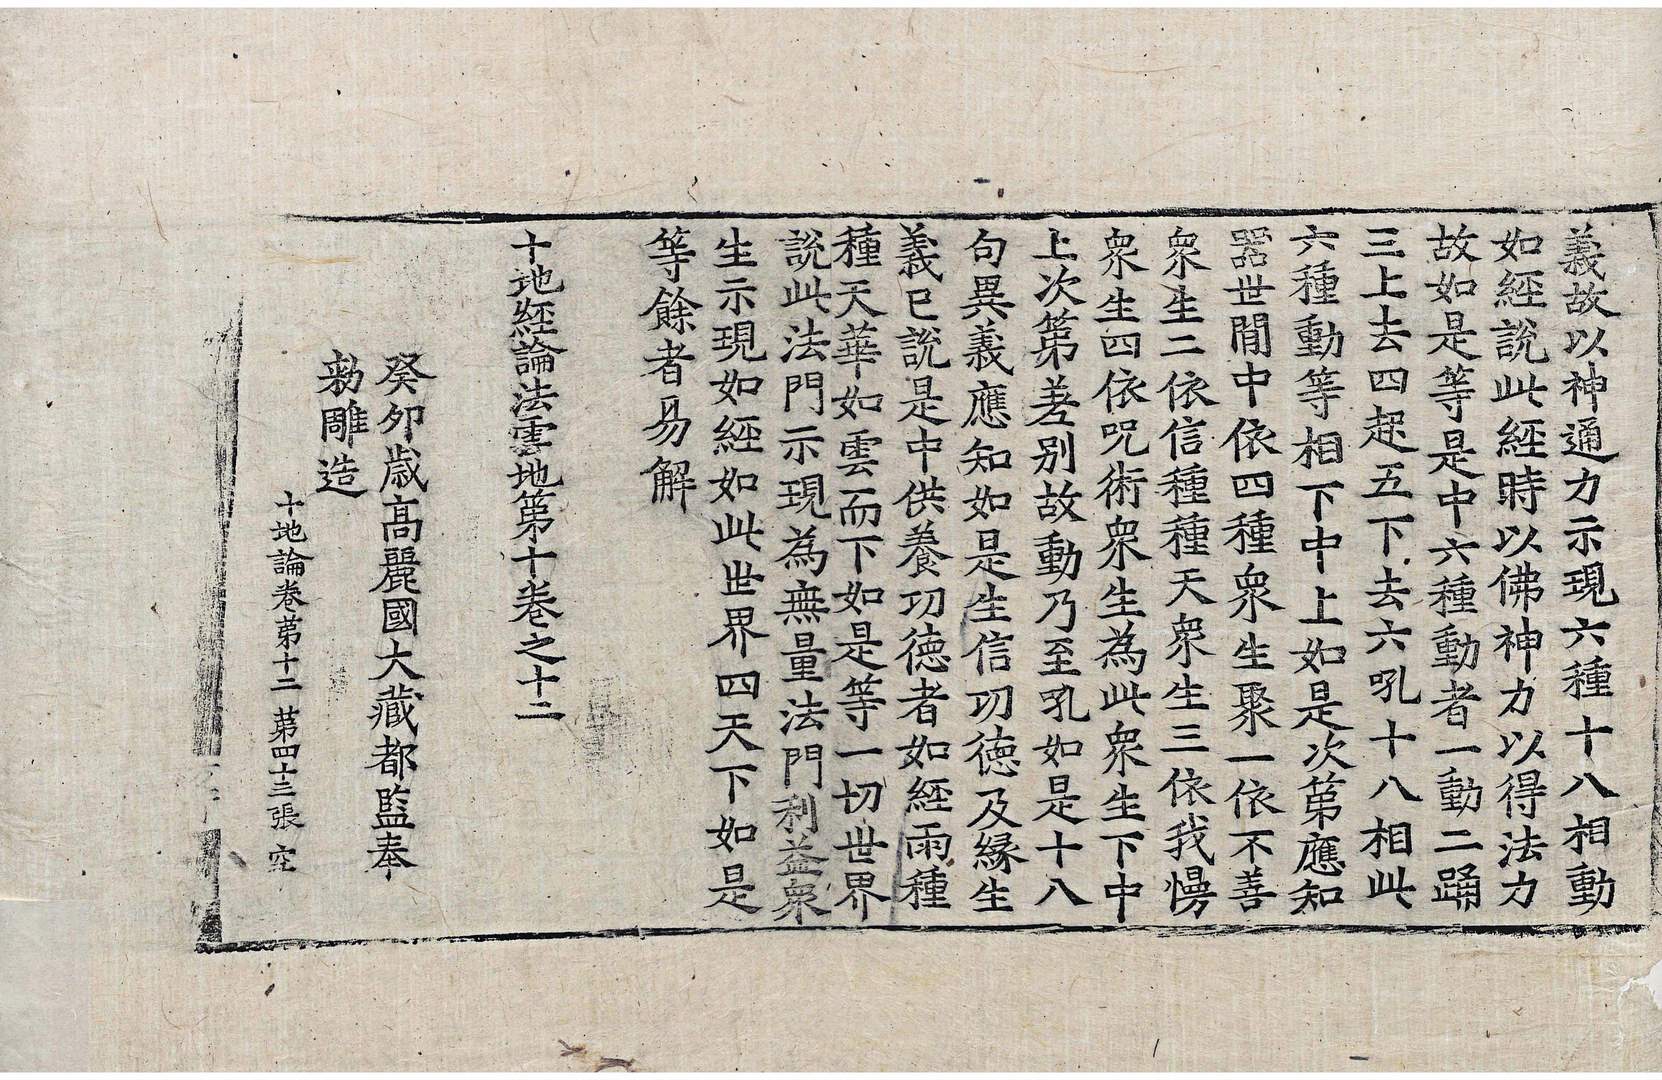 義故以神通力示現六種十八相動
如經說此經時以佛神力以得法力
故如是等是中六種動者一動二踊
三上去四起五下去六吼十八相此
六種動等相下中上如是次第應知
器世間中依四種衆生聚一依不善
衆生二依信種種天衆生三依我慢
衆生四依呪術衆生為此衆生下中
上次第差别故動乃至吼如是十八
句異義應知如是生信功德及緣生
義已說是中供養功德者如經雨種
種天華如雲而下如是等一切世界
說此法門示現為無量法門利益衆
生示現如經如此世界四天下如是
等餘者易解
十地經論法雲地第十卷之十二
癸卯歲高麗國大藏都監奉
勑雕造
十地論卷第十二 第四十三張 空